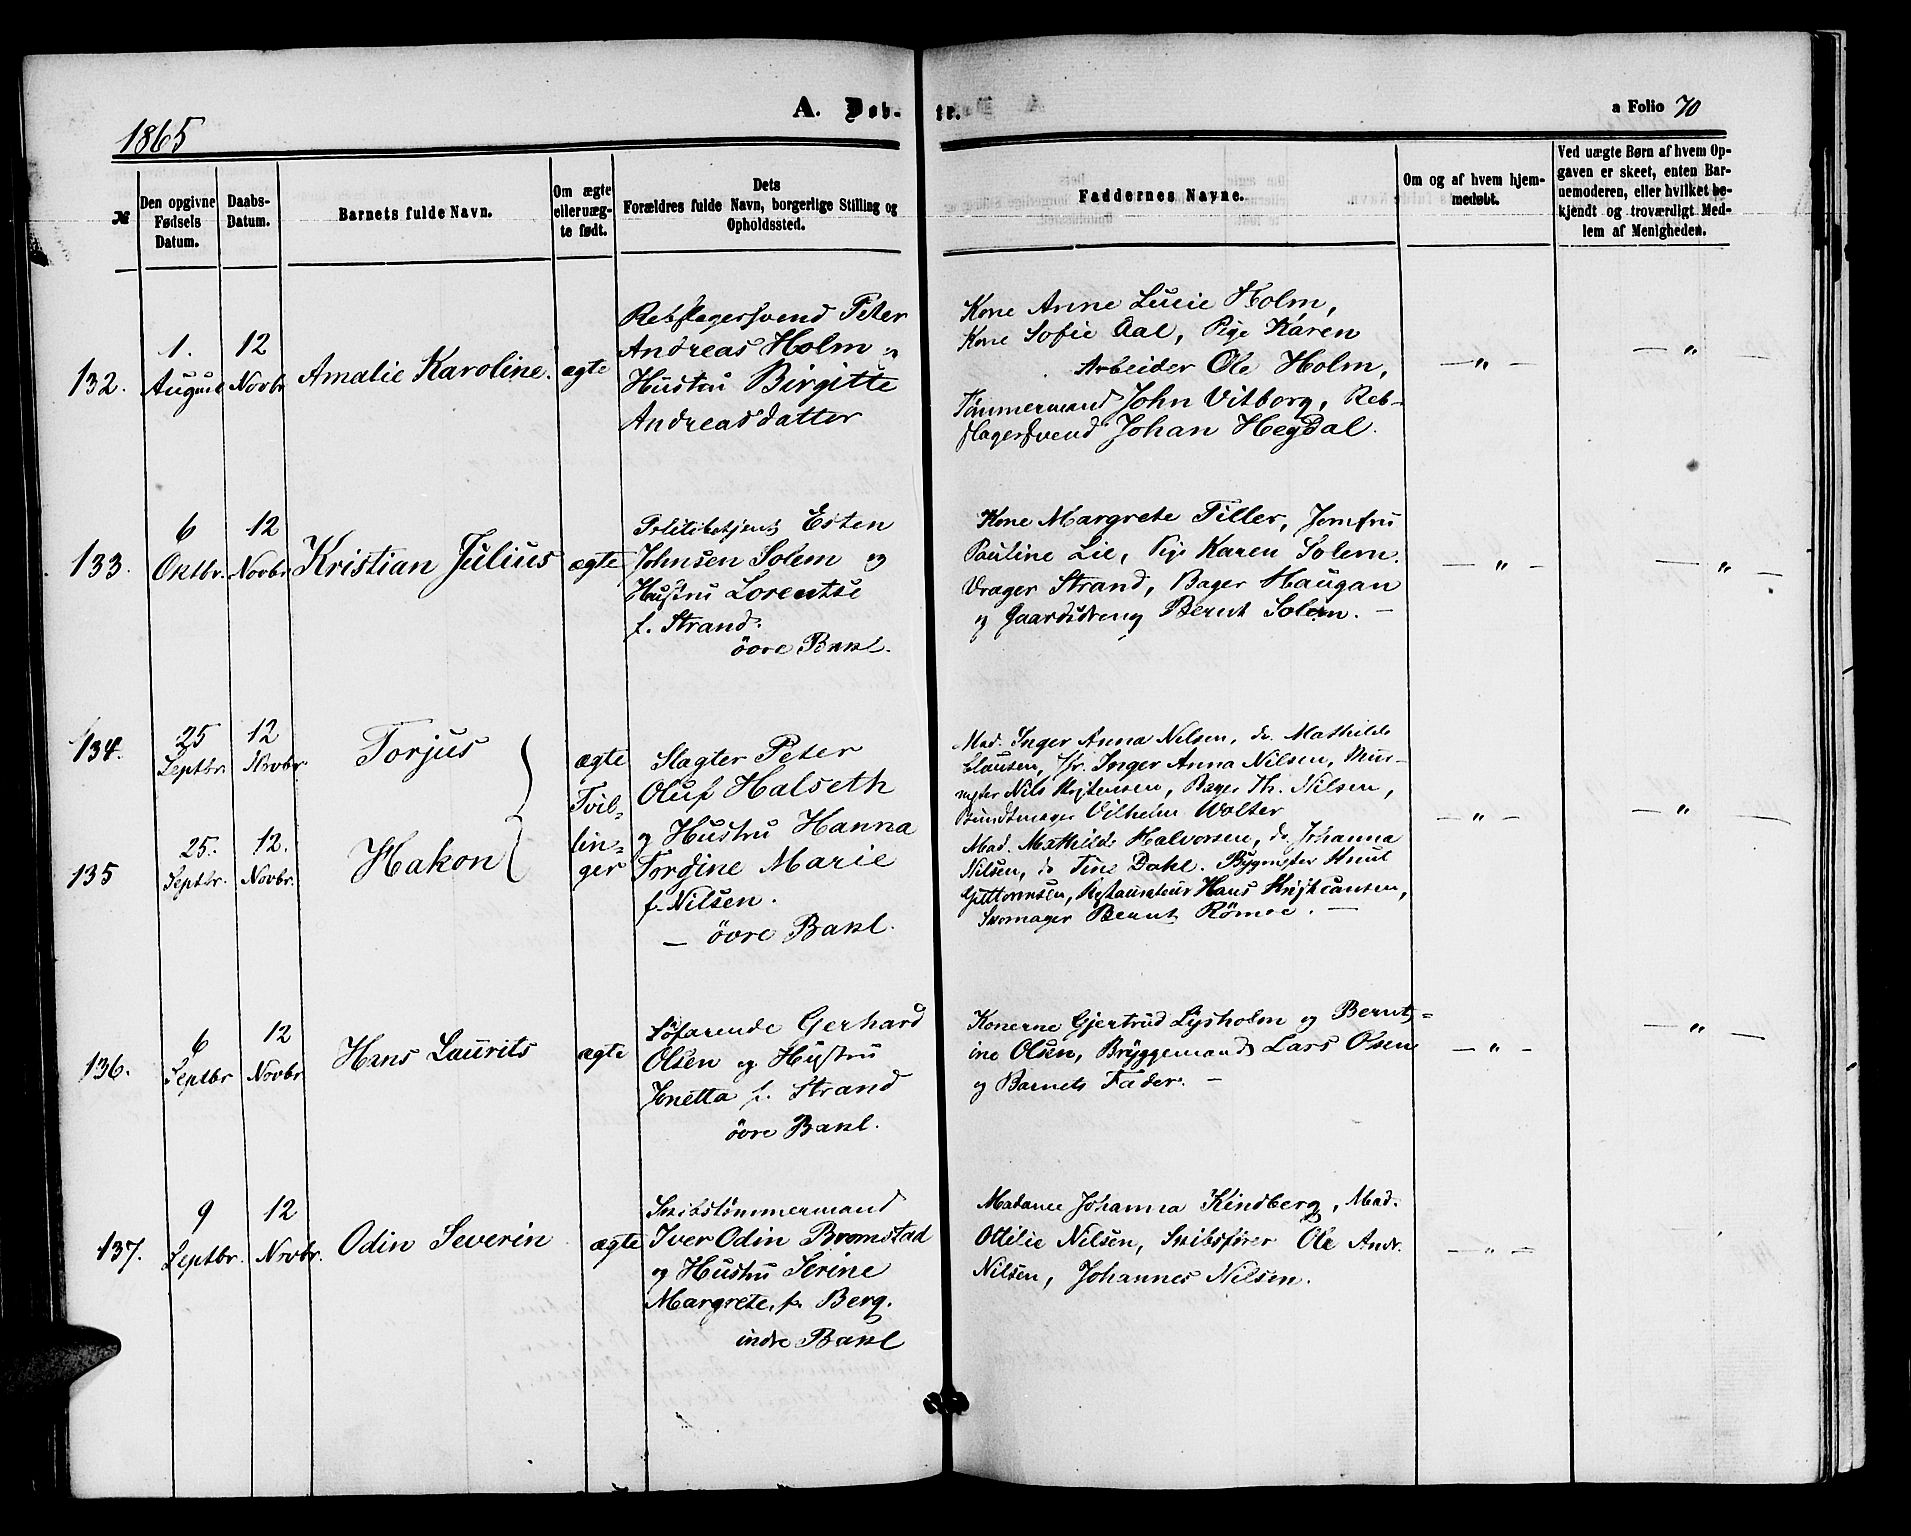 1865
A. Døb-
tr.
a Folio 70
№
Den opgivne Fødsels Datum.
Daabs-Datum.
Barnets fulde Navn.
Om ægte eller uæg-te født.
Dets Forældres fulde Navn, borgerlige Stilling og Opholdssted.
Faddernes Navne.
Om og af hvem hjem-medøbt.
Ved uægte Børn af hvem Op-gaven er skeet, enten Bar-nemoderen, eller hvilket be-kjendt og troværdigt Med-lem af Menigheden.
132.
1. August
12 Novbr
Amalie Karoline.
ægte
Rebslagersvend Peter
Andreas Holm og
Hustru Birgitte
Andreasdatter
Kone Anne Lucie Holm,
Kone Sofie Aal, Pige Karen
Arbeider Ole Holm,
Tömmermand John Vitborg, Reb-
slagersvend Johan Hegdal.
— " —
— " —
133.
6 Oktbr.
12 Novbr
Kristian Julius
ægte
Politibetjent Esten
Johnsen Solem og
Hustru Lorentse
f. Strand.
övre Bakl.
Kone Margrete Tiller, Jomfru
Pauline Lie, Pige Karen Solem.
Vrager Strand, Bager Haugan
og Gaardsdreng Bernt Solem. —
— " —
— " —
134.
25 Septbr.
12 Novbr
Torjus
135
25. Septbr.
12. Novbr.
Hakon
ægte
Tvil-
lin-
ger
Slagter Peter
Oluf Halseth
og Hustru Hanna
Tordine Marie
f. Nilsen.
— övre Bakl.
Mad. Inger Anna Nilsen, do. Mathilde
Clausen, Jfr. Inger Anna Nilsen, Mur-
mster Nils Kristensen, Bager Th. Nilsen,
Bundtmager Vilhelm Wolter
Mad. Mathilde Halvorsen, do Johanna
Nilsen, do Tine Dahl. Bygmster Knut
Guttormsen, Restaurateur Hans Kristiansen,
Skomager Bernt Römoe. —
— " —
— " —
136.
6 Septbr
12 Novbr
Hans Laurits
ægte
Söfarende Gerhard
Olsen og Hustru
Jonetta f. Strand
övre Bakl.
Konerne Gjertrud Lysholm og Bernt-
ine Olsen, Bryggemand Lars Olsen
og Barnets Fader. —
— " —
— " —
137.
9 Septbr.
12 Novbr.
Odin Severin
ægte
Skibstömmermand
Iver Odin Bromstad
og Hustru Serine
Margrete, f. Berg.
indre Bakl
Madame Johanna Kindberg, Mad.
Ottilie Nilsen, Skibsförer Ole Andr.
Nilsen, Johannes Nilsen.
— " —